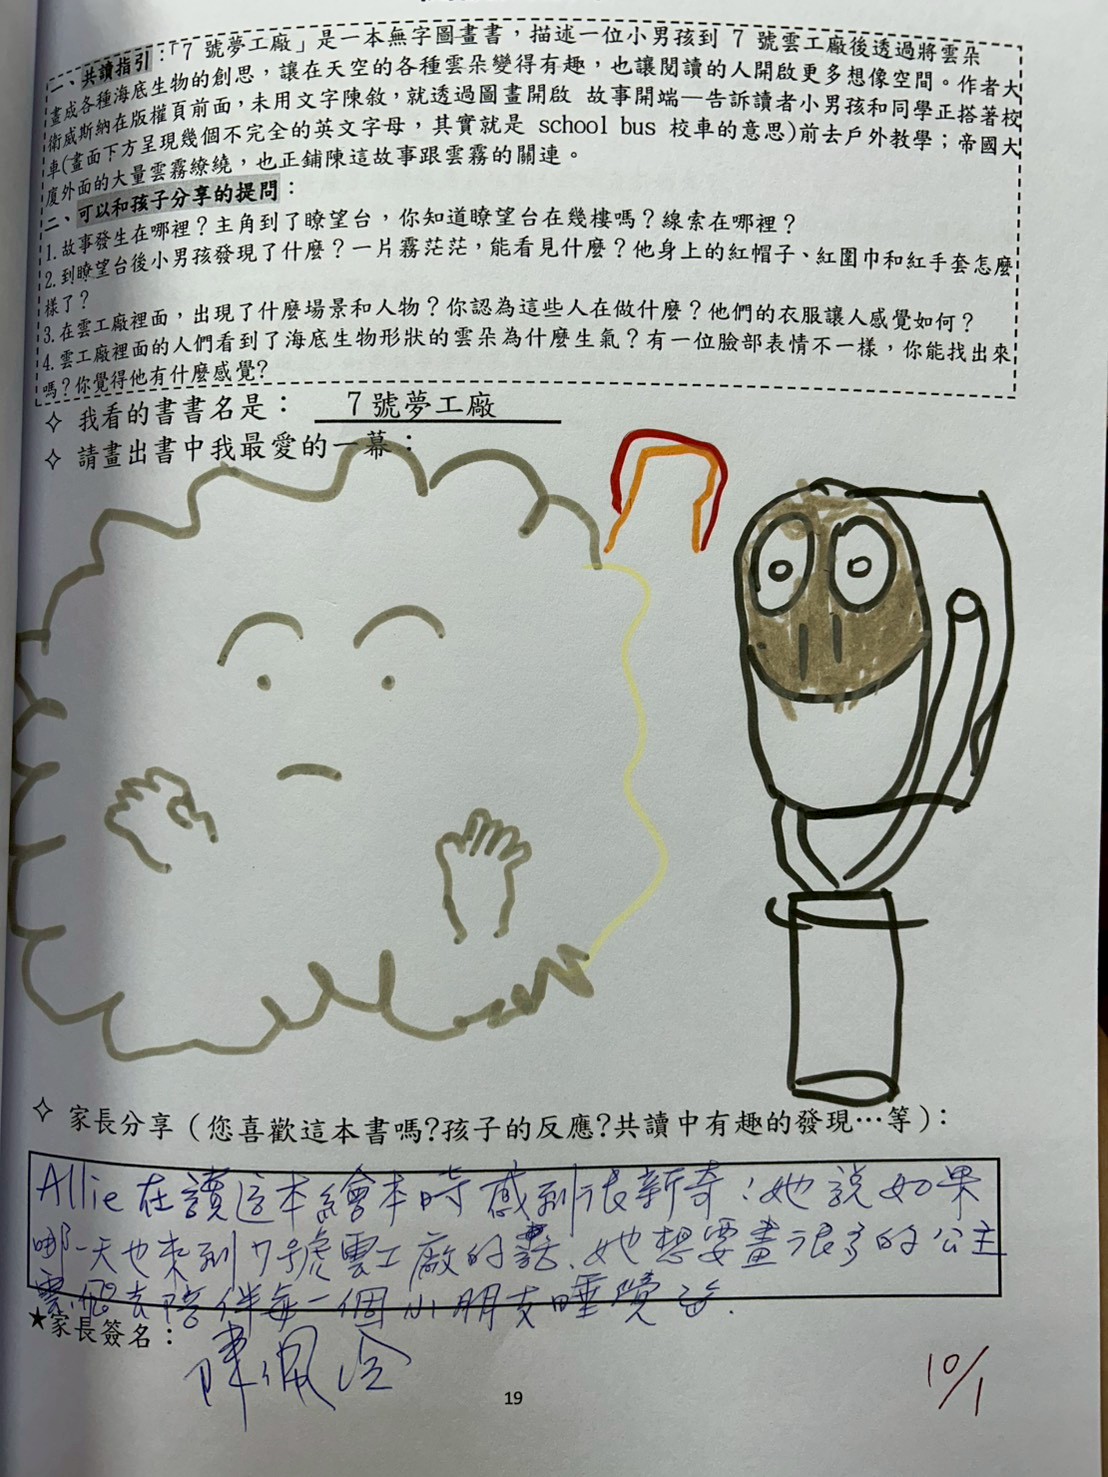 一、共讀指引：「7 號夢工廠」是一本無字圖畫書，描述一位小男孩到 7 號雲工廠後透過將雲朵
畫成各種海底生物的創思，讓在天空的各種雲朵變得有趣，也讓閱讀的人開啟更多想像空間。作者大
衛威斯納在版權頁前面，未用文字陳敘，就透過圖畫開啟 故事開端—告訴讀者小男孩和同學正搭著校
車(畫面下方呈現幾個不完全的英文字母，其實就是 school bus 校車的意思)前去戶外教學；帝國大
廈外面的大量雲霧繚繞，也正鋪陳這故事跟雲霧的關連。
二、可以和孩子分享的提問：
1.故事發生在哪裡？主角到了瞭望台，你知道瞭望台在幾樓嗎？線索在哪裡？
2.到瞭望台後小男孩發現了什麼？一片霧茫茫，能看見什麼？他身上的紅帽子、紅圍巾和紅手套怎麼
樣了？
3.在雲工廠裡面，出現了什麼場景和人物？你認為這些人在做什麼？他們的衣服讓人感覺如何？
4.雲工廠裡面的人們看到了海底生物形狀的雲朵為什麼生氣？有一位臉部表情不一樣，你能找出來
嗎？你覺得他有什麼感覺?
✧ 我看的書書名是： 7 號夢工廠
✧ 請畫出書中我最愛的一幕：
✧ 家長分享（您喜歡這本書嗎?孩子的反應?共讀中有趣的發現…等）：
Allie 在讀這本繪本時感到很新奇！她說如果
哪一天也來到7號雲工廠的話、她想要畫很多的公主
雲、飛去陪伴每一個小朋友睡覺
★家長簽名：
陳佩
19
10/1